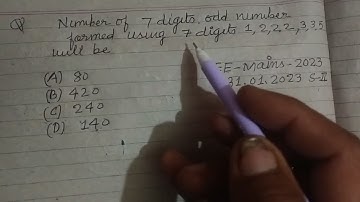 Q Number of 7 digits odd number
formed using 7 digits 1,2,2,2,3,3,5
will be
(A) 80
(B) 420
(C) 240
(D) 140
EE-Mains-2023
31.01.2023 S-II